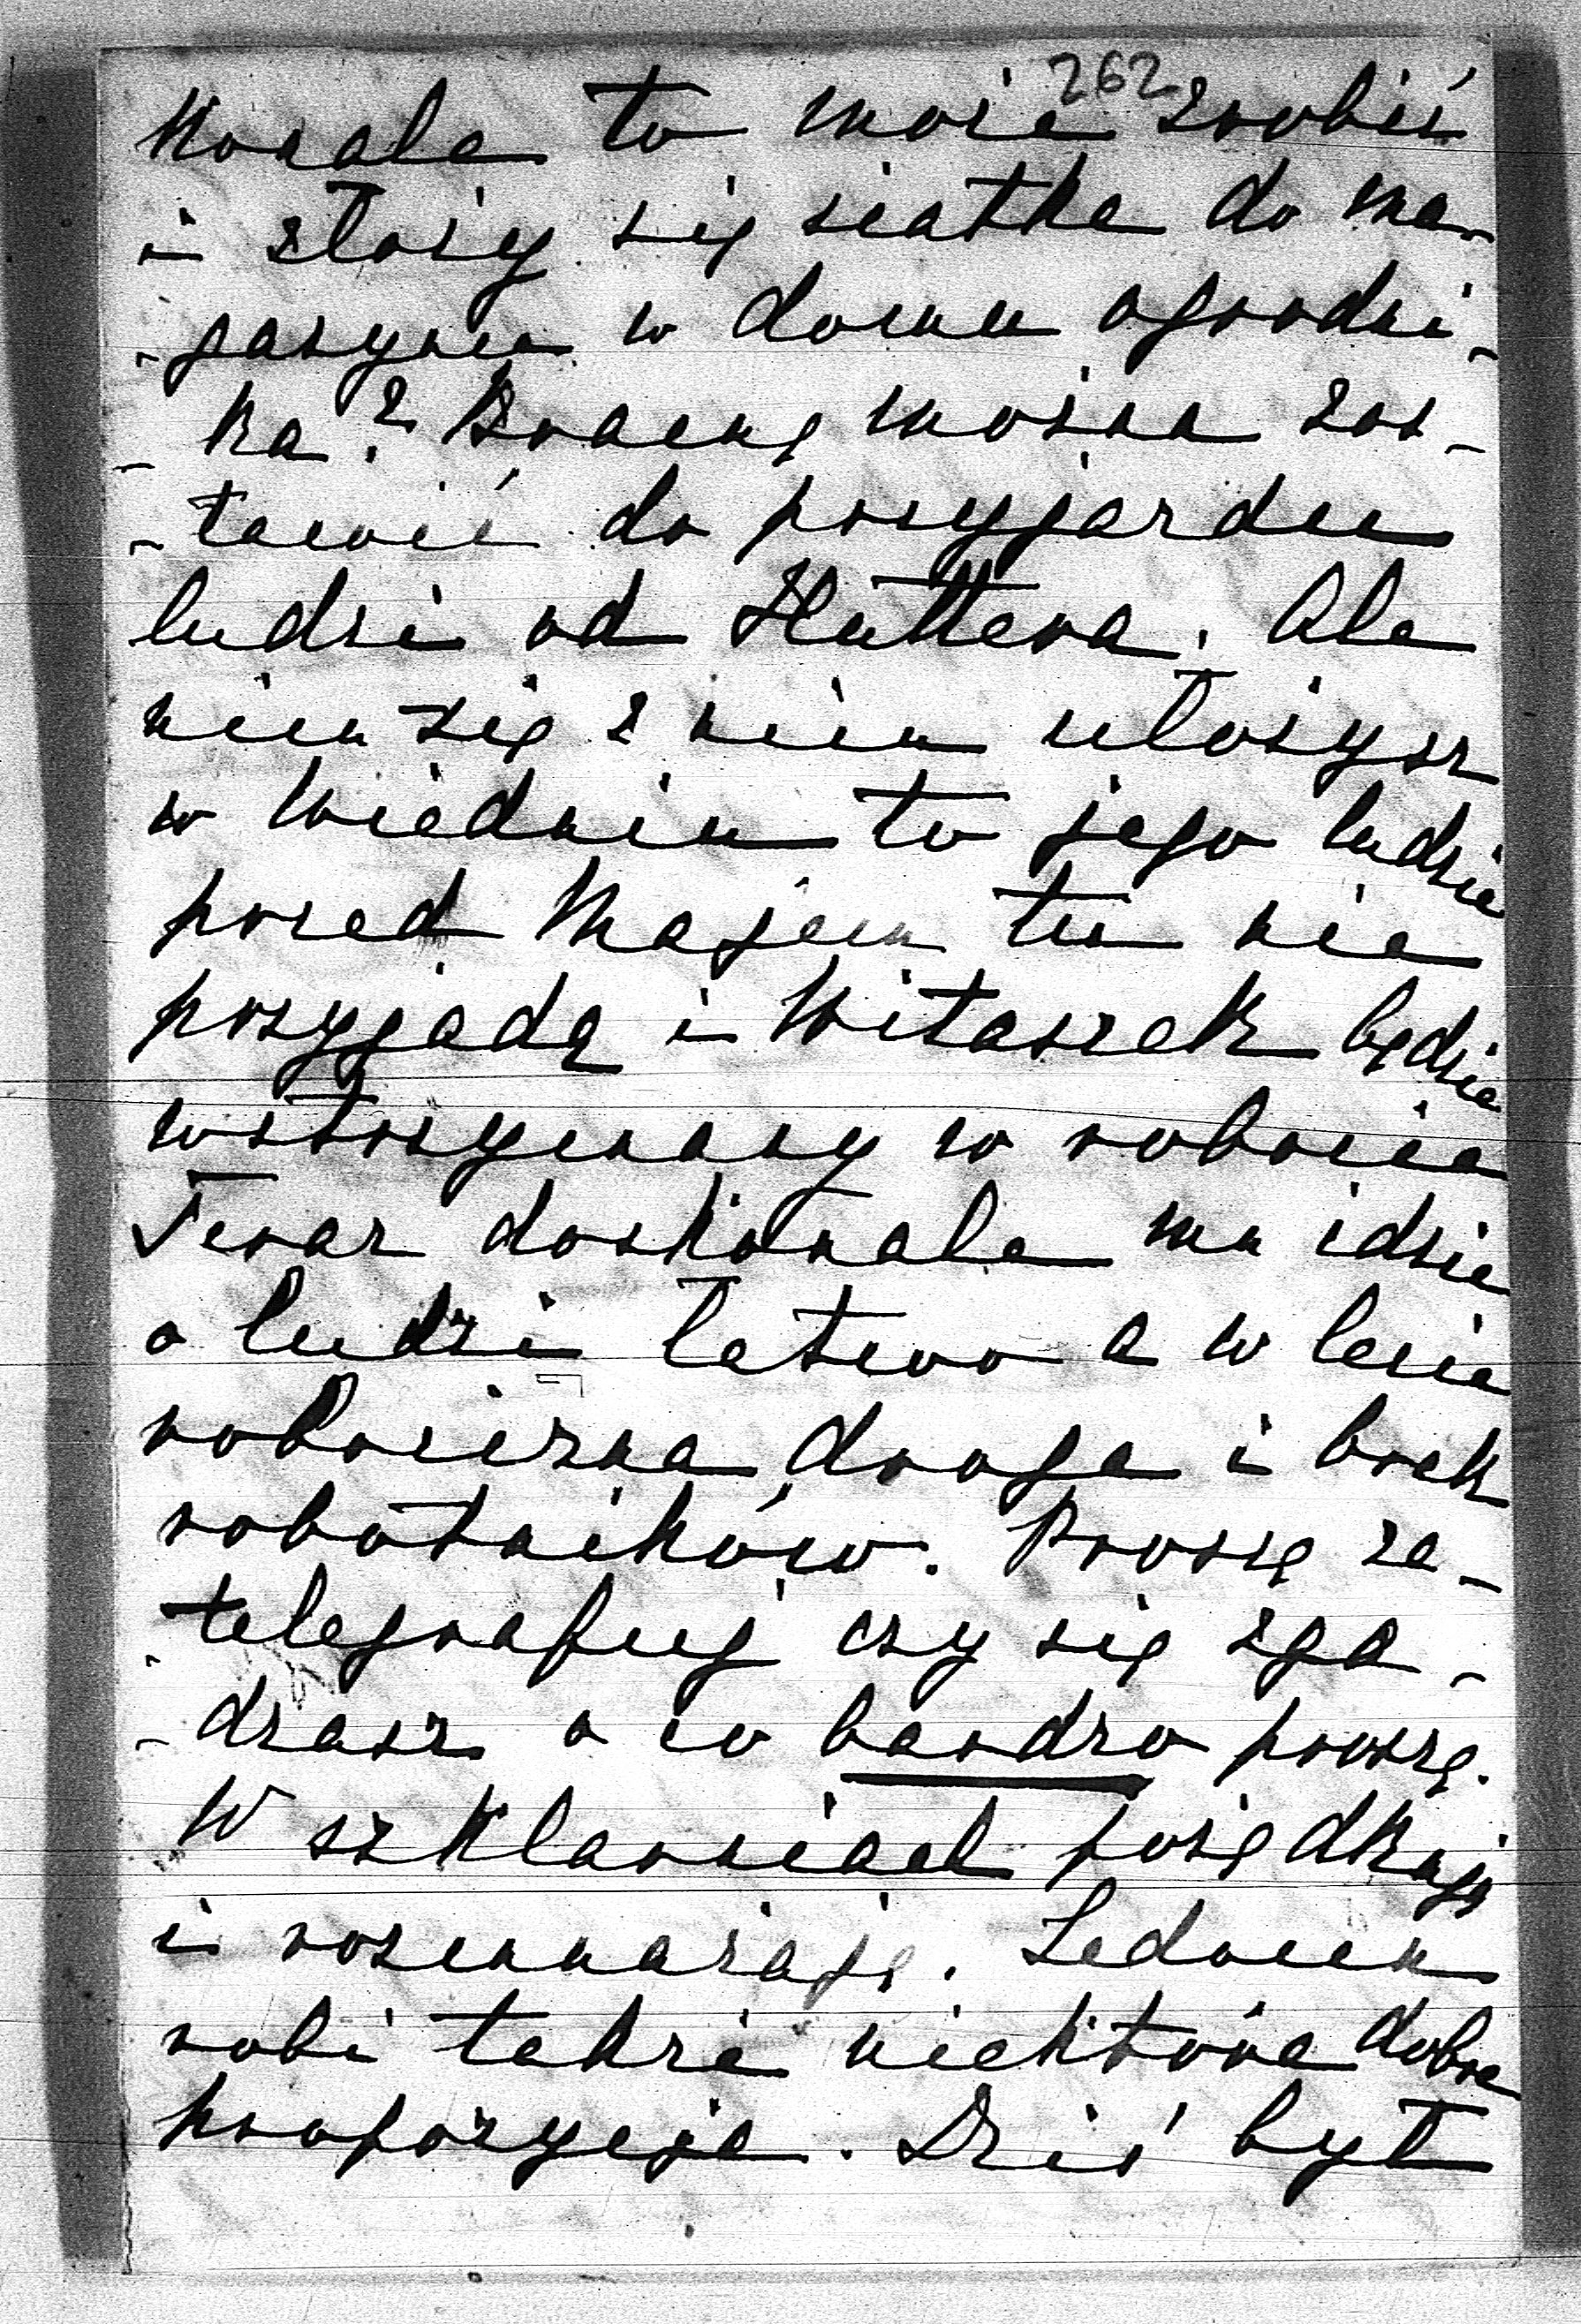 262
Kovale to może zrobić
i złoży się siatkę do ma-
-gazynu w domu ogrodni-
-ka? Bramę można zos-
-tawić do przyjazdu
ludzi od Huttera. Ale
nim się z nim ułożysz
w Wiedniu to jego ludzie
przed Majem tu nie
przyjadą i Witaszek będzie
wstrzymany w robocie
Teraz doskonale mu idzie
o ludzi łatwo a w lecie
robocizna droga i brak
robotników. Proszę za-
-telegrafuj czy się zga-
-dzasz o co bardzo proszę.
W szklarniach porządkują
i rozmnażają. Ledwem
robi także niektóre dobre
propozycje. Dziś był